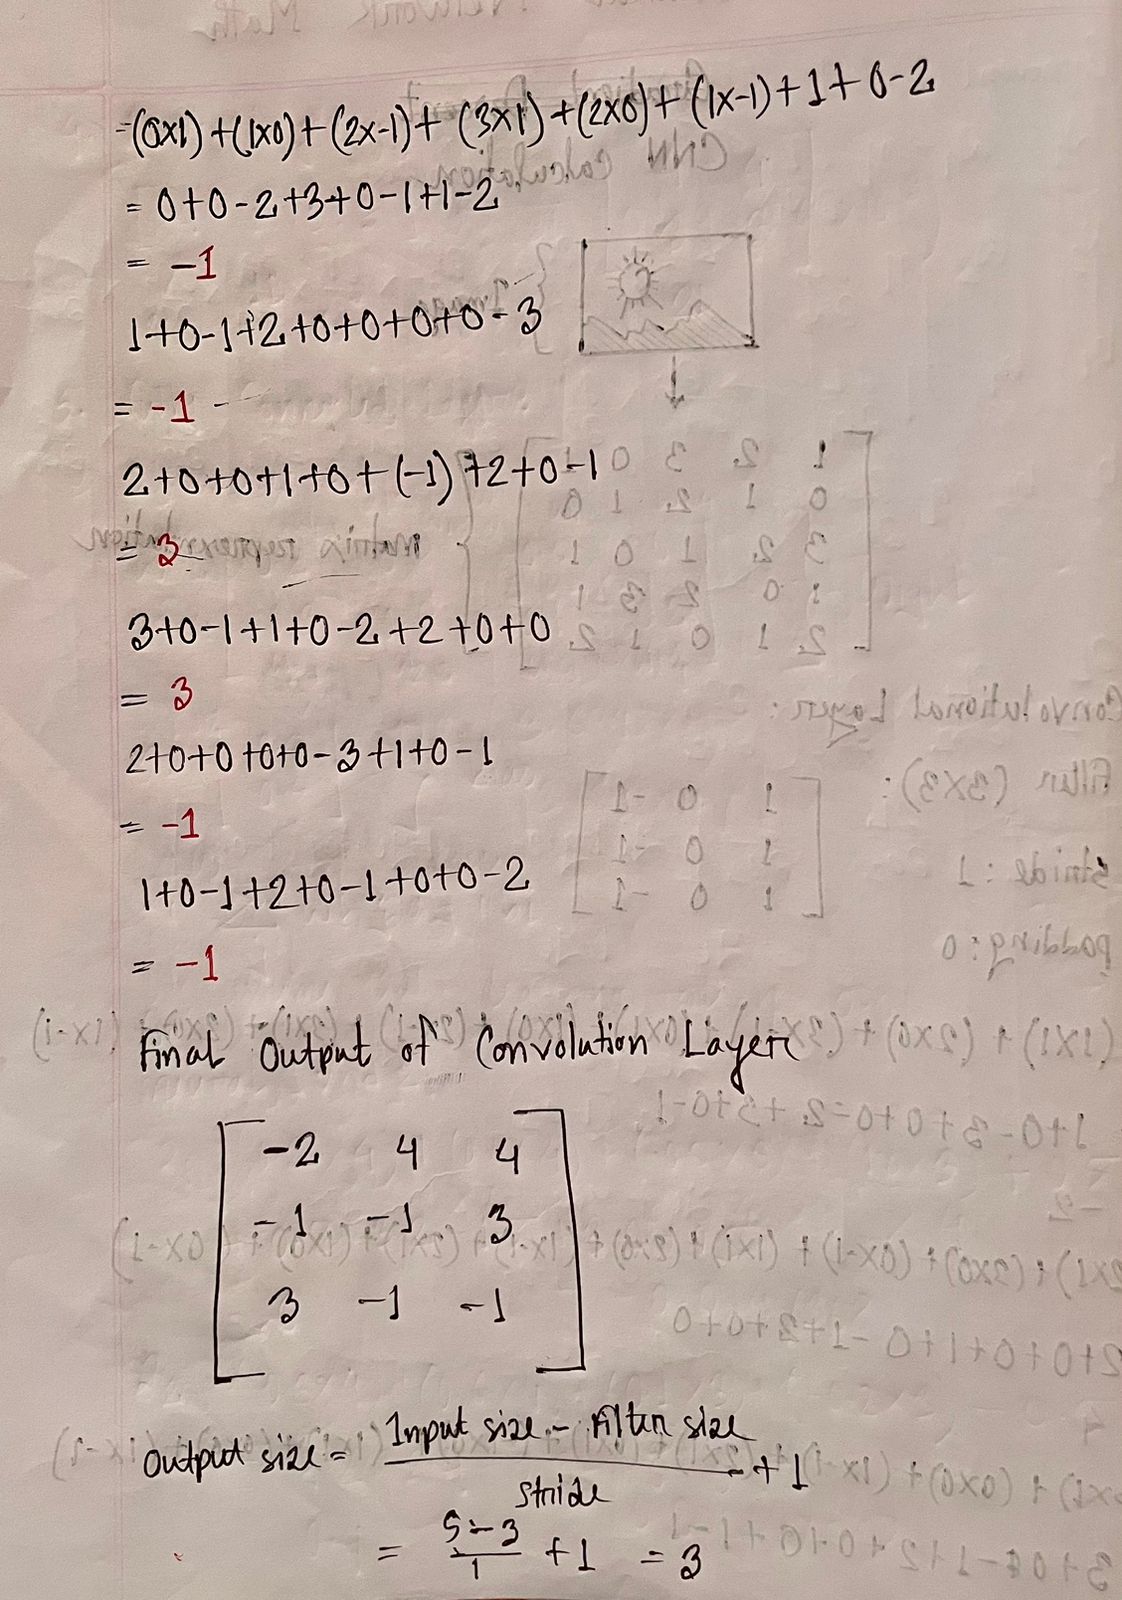 =(0x1)+(1x0)+(2x-1)+(3x1)+(2x0)+(1x-1)+1+0-2
= 0+0-2+3+0-1+1-2
= -1
1+0-1+2+0+0+0+0-3
= -1
2+0+0+1+0+(-1)+2+0-1
= 3
3+0-1+1+0-2+2+0+0
= 3
2+0+0+0+0-3+1+0-1
= -1
1+0-1+2+0-1+0+0-2
= -1
Final Output of Convolution Layer
-2 4 4
-1 -1 3
3 -1 -1
Output size = Input size - Filter size / Stride + 1
= 5-3 / 1 + 1 = 3